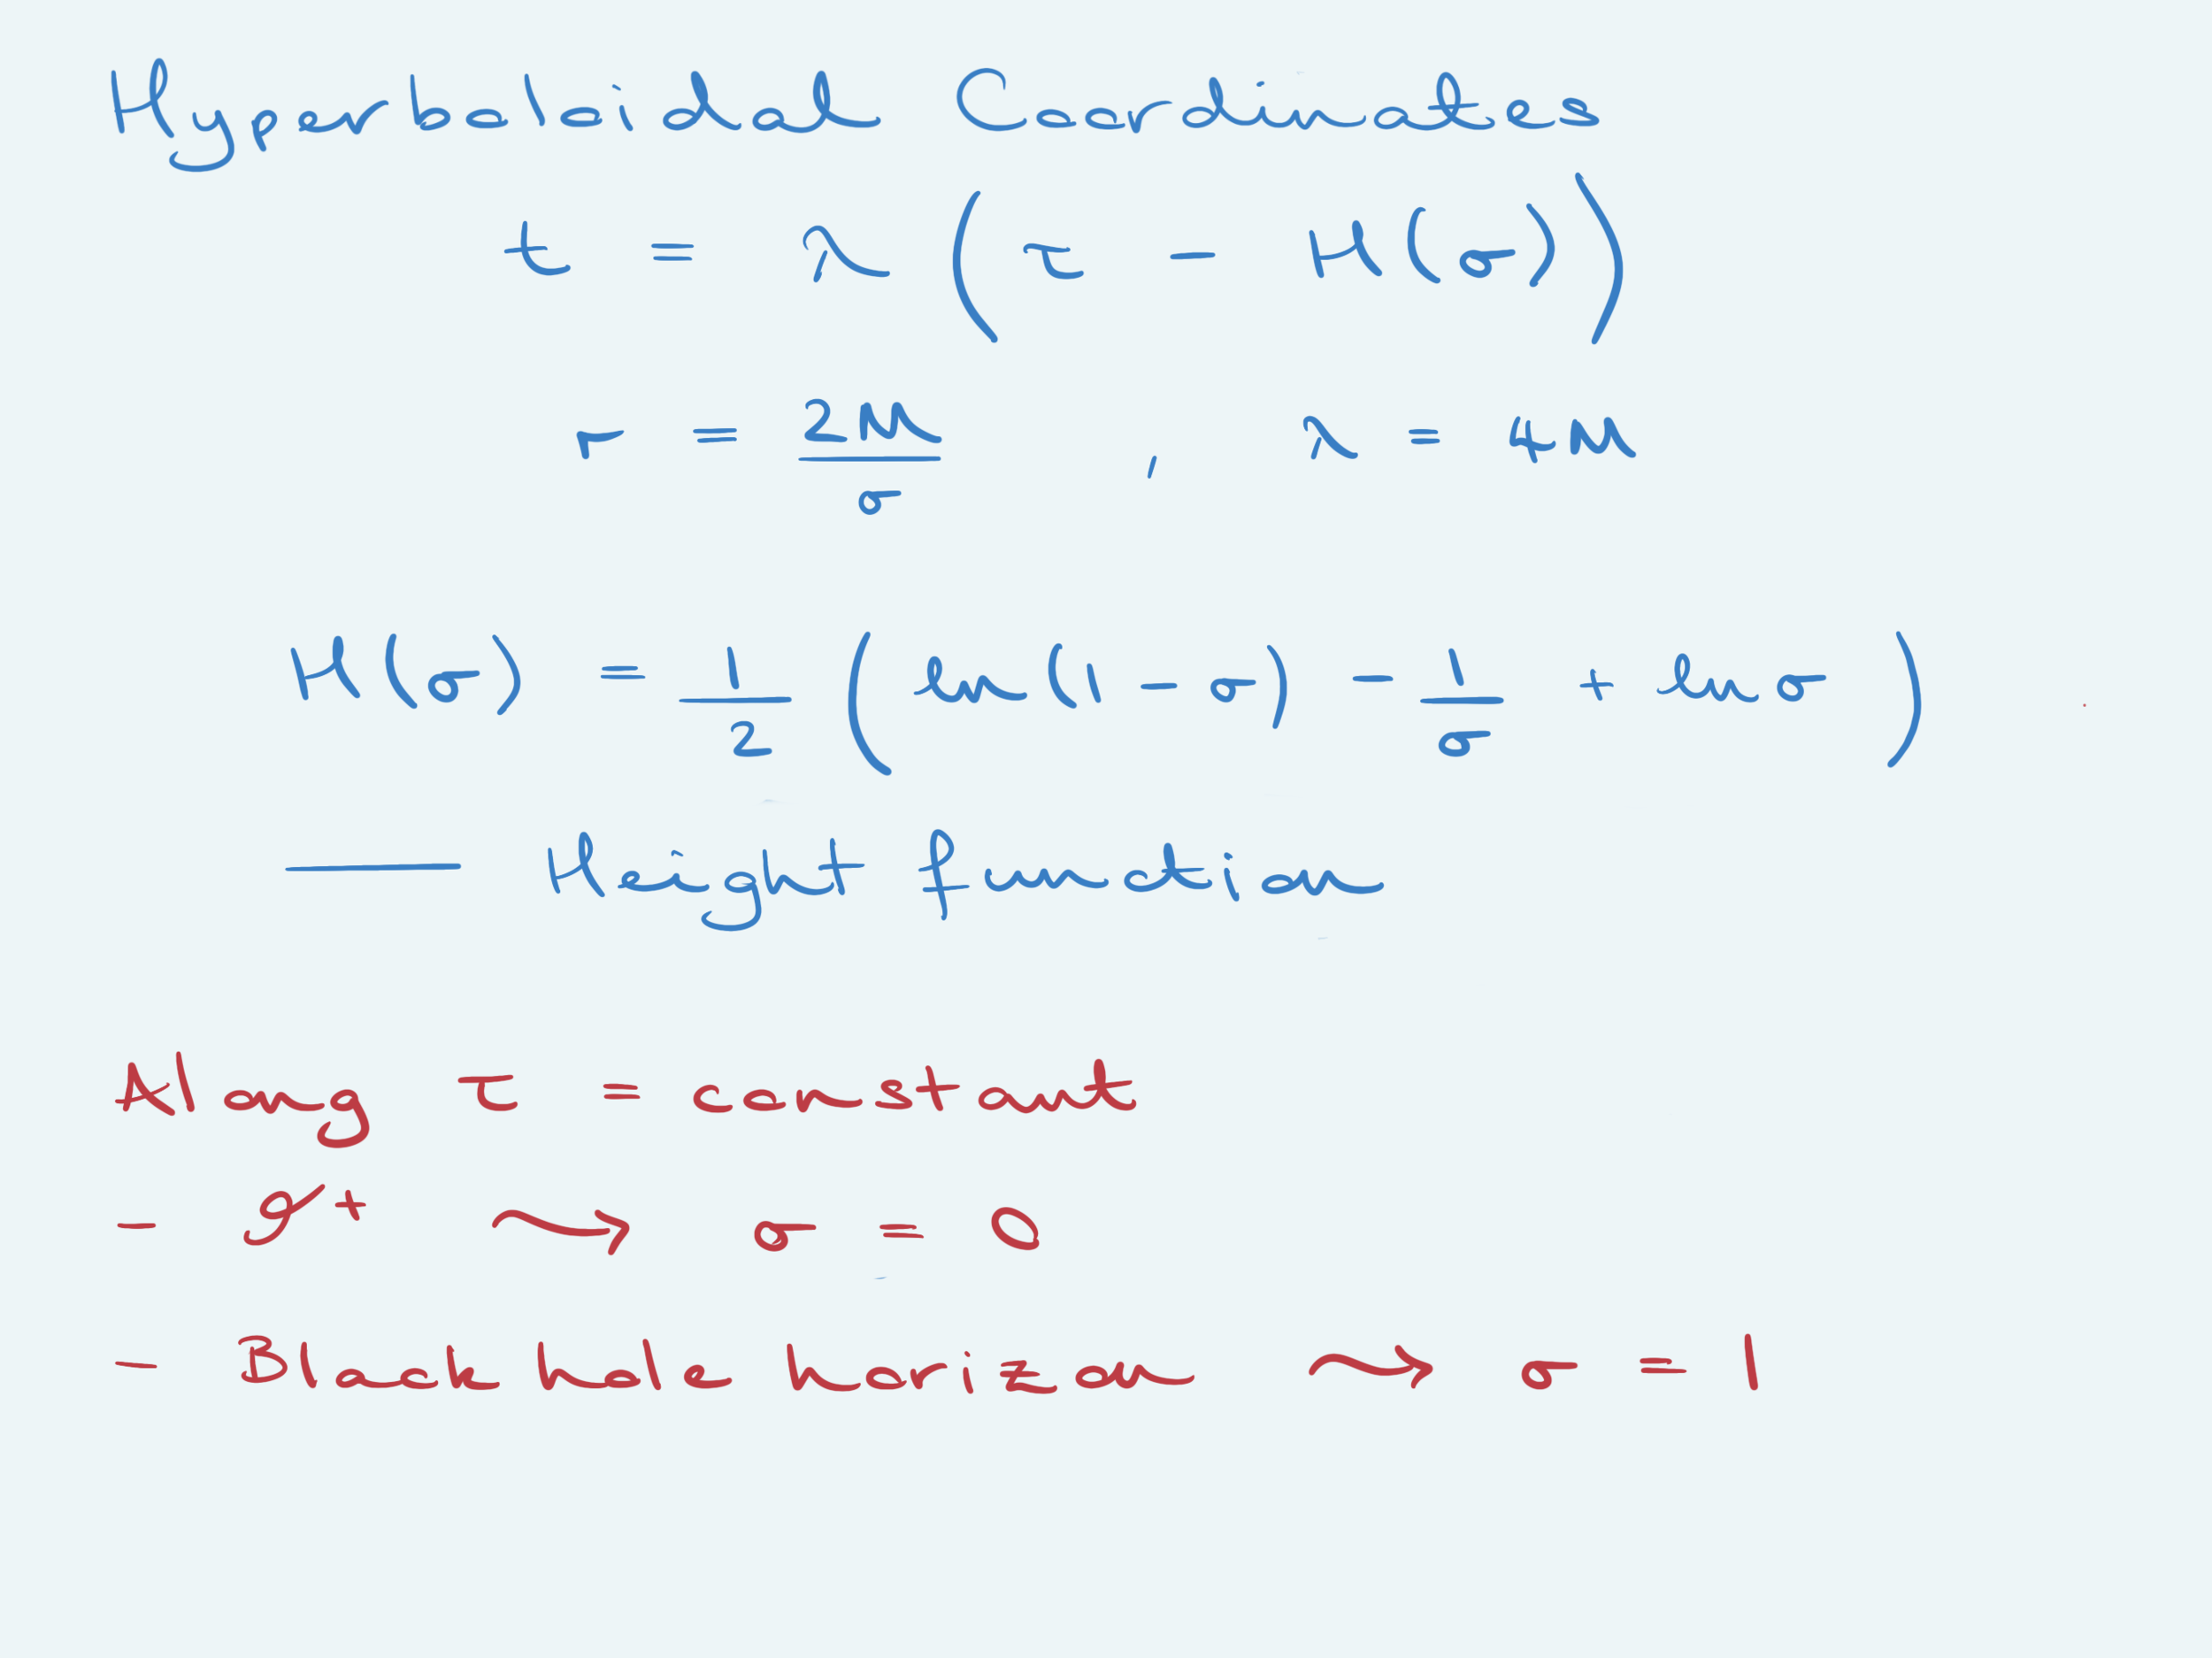 Hyperboloidal Coordinates
t = λ (τ - H(σ))
r = 2M/σ , λ = 4M
H(σ) = 1/2 (ln(1 - σ) - 1/σ + ln σ)
— Height function
Along τ = constant
- 𝓘⁺ ⇝ σ = 0
- Black hole horizon ⇝ σ = 1